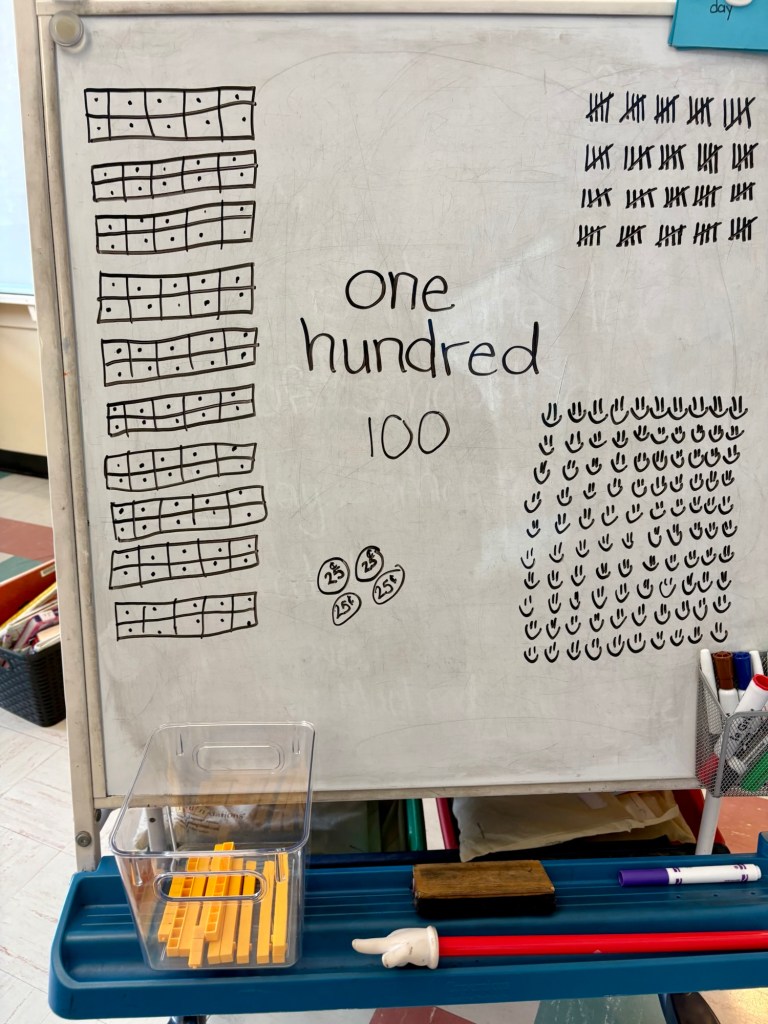 day
one
hundred
100
25¢ 25¢
25¢ 25¢